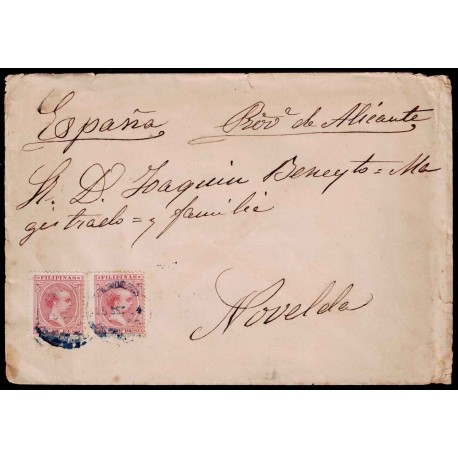 España Prov.ª de Alicante
Sr. D. Joaquin Beneyto = Ma
gistrado = y familia
FILIPINAS FILIPINAS
Novelda